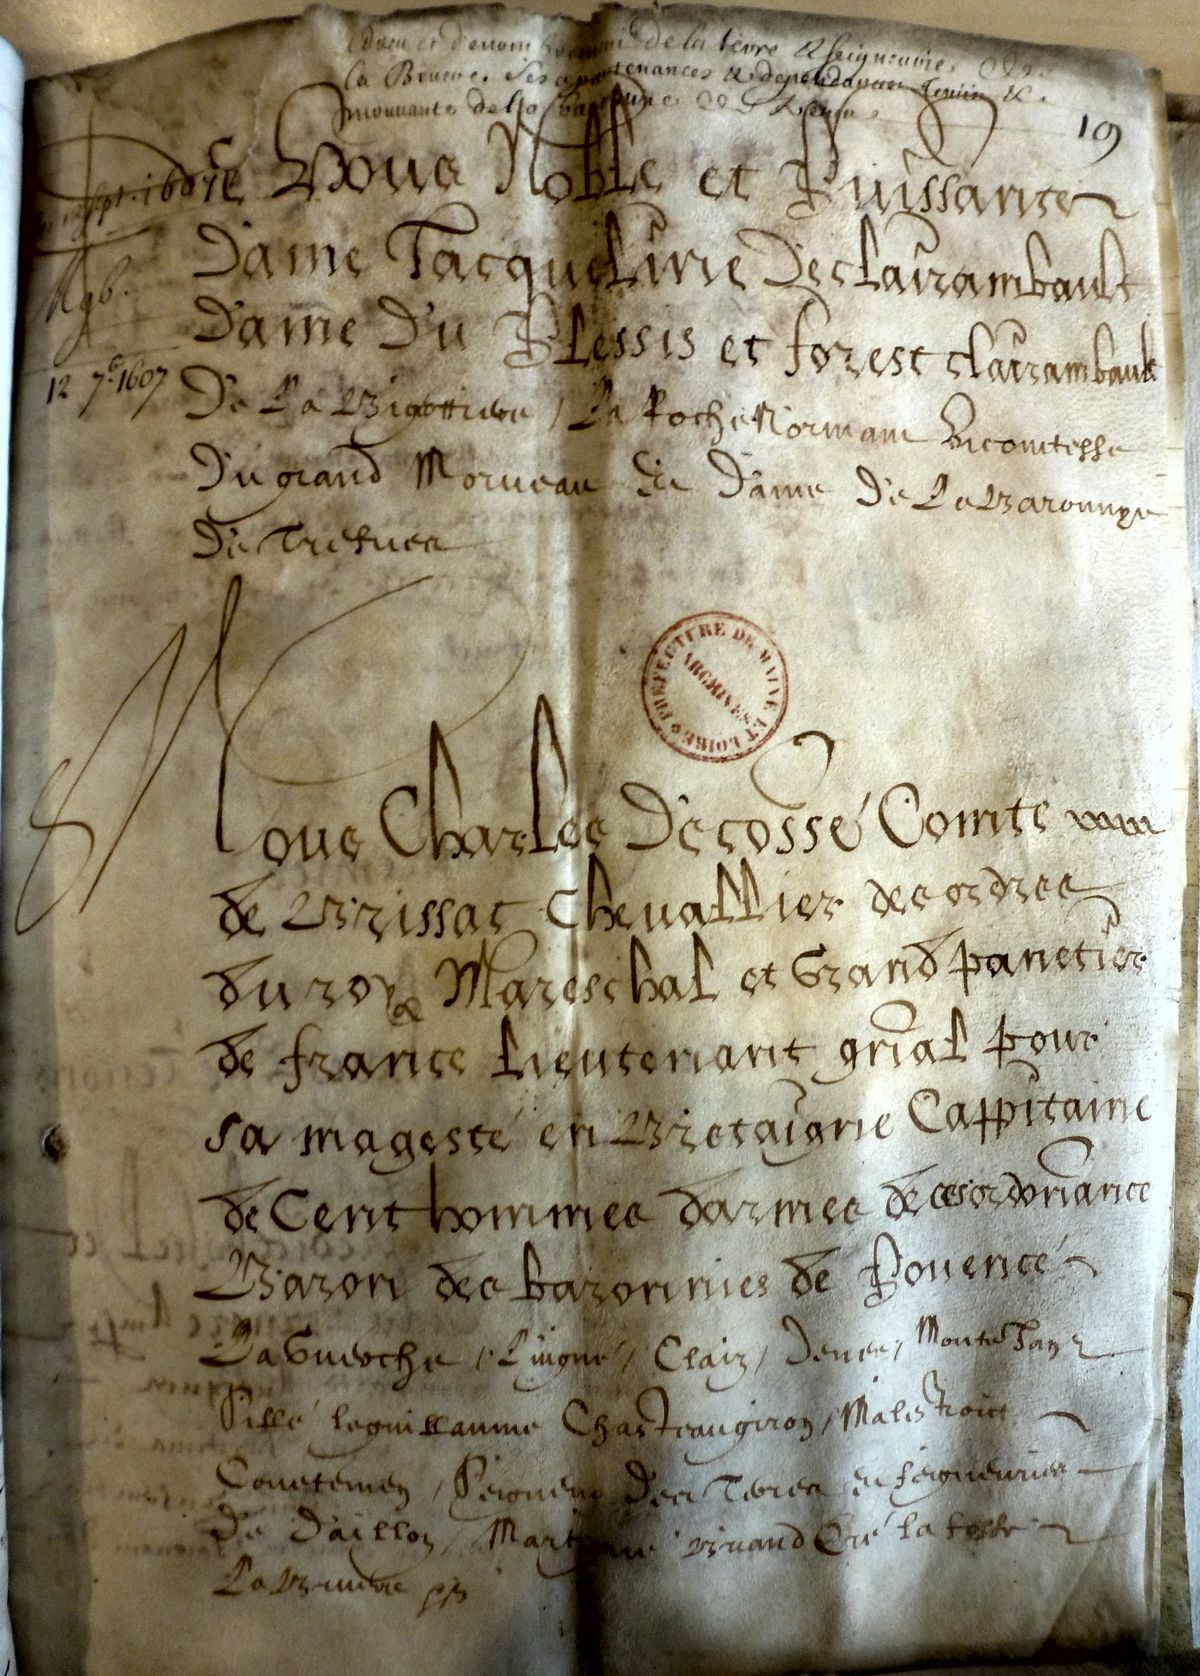 Adveu et denombrement de la terre & seigneurie de
la Bruere, ses apartenances & dependances tenue &
mouvante de la baronnie de
19
sept. 1607
12 7.e 1607
De Vous Noble et Puissante
Dame Jacqueline Desclairambault
Dame Du Plessis et forest clairambault
De La Bigottiere / La Roche Normant Vicomtesse
Du grand Morueau et Dame De La Baronnye
De Trefues
Nous Charles De cossé Comte
de Brissac Chevallier des ordres
du roy Mareschal et Grand panetier
de france Lieutenant gnal pour
sa magesté en Bretaigne Cappitaine
de Cent hommes darmes de ces ordonnances
Baron des baronnies de Pouencé
La Guerche / / Clair / Deneé / Monte Jan
Sillé leguillaume Chasteaugiron / Malestroict
Couetemen / Seigneur Des Terres et seigneuries
De Daillon / Briand Cré la fosse
La Bruere
PREFECTURE DE MAINE ET LOIRE
ARCHIVES